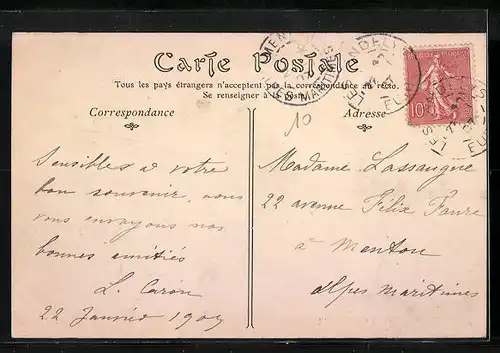 Carte Postale
Tous les pays étrangers n'acceptent pas la correspondance au recto.
Se renseigner à la Poste.
Correspondance
10
Adresse
10
Sensibles à votre
bon souvenir, nous
vous envoyons nos
bonnes amitiés
L. Caron
22 Janvier 1907
Madame Lassaugne
22 avenue Félix Faure
à Menton
Alpes Maritimes